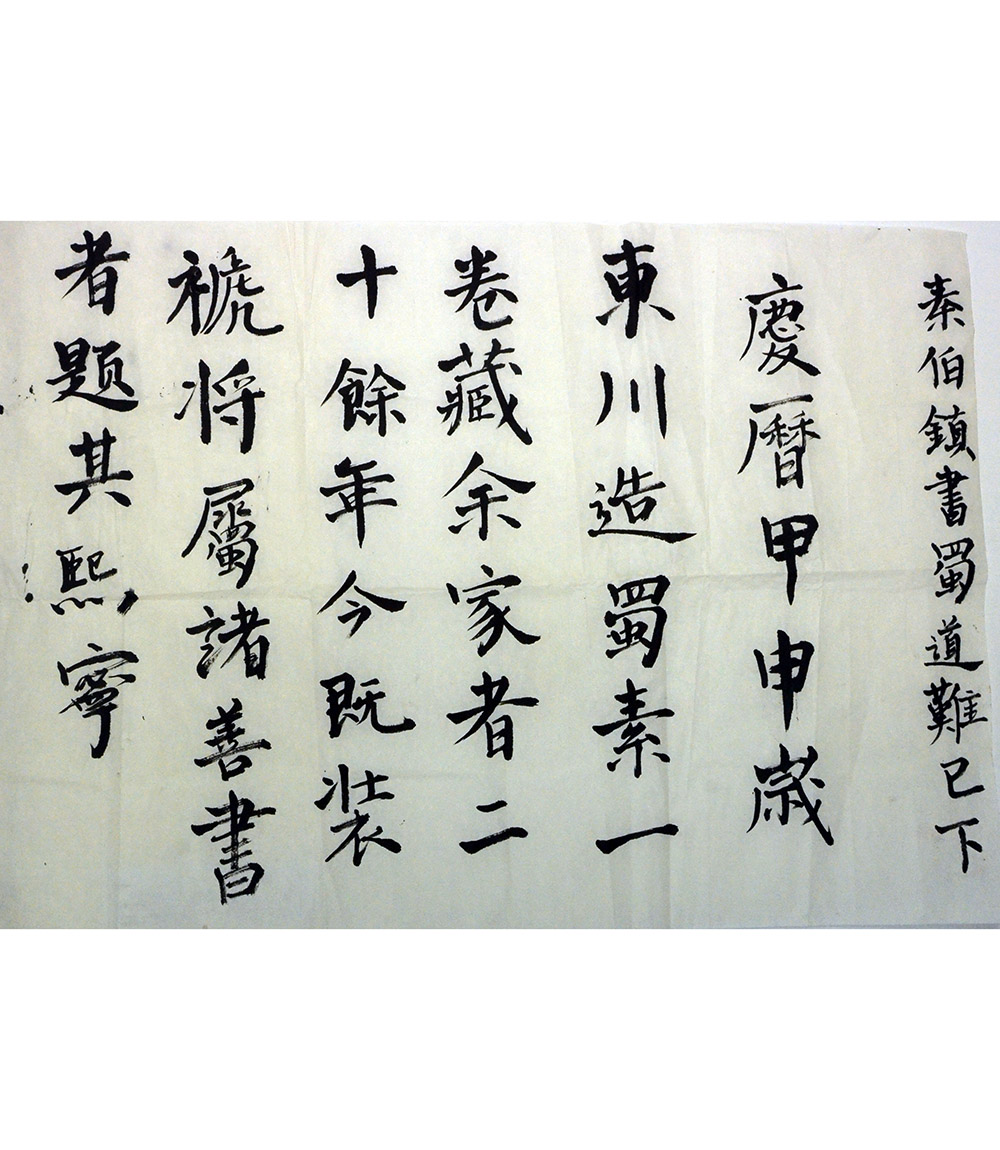 秦伯鎮書蜀道難已下
慶曆甲申歲
東川造蜀素一
卷藏余家者二
十餘年今既装
褫将屬諸善書
者題其熙寧